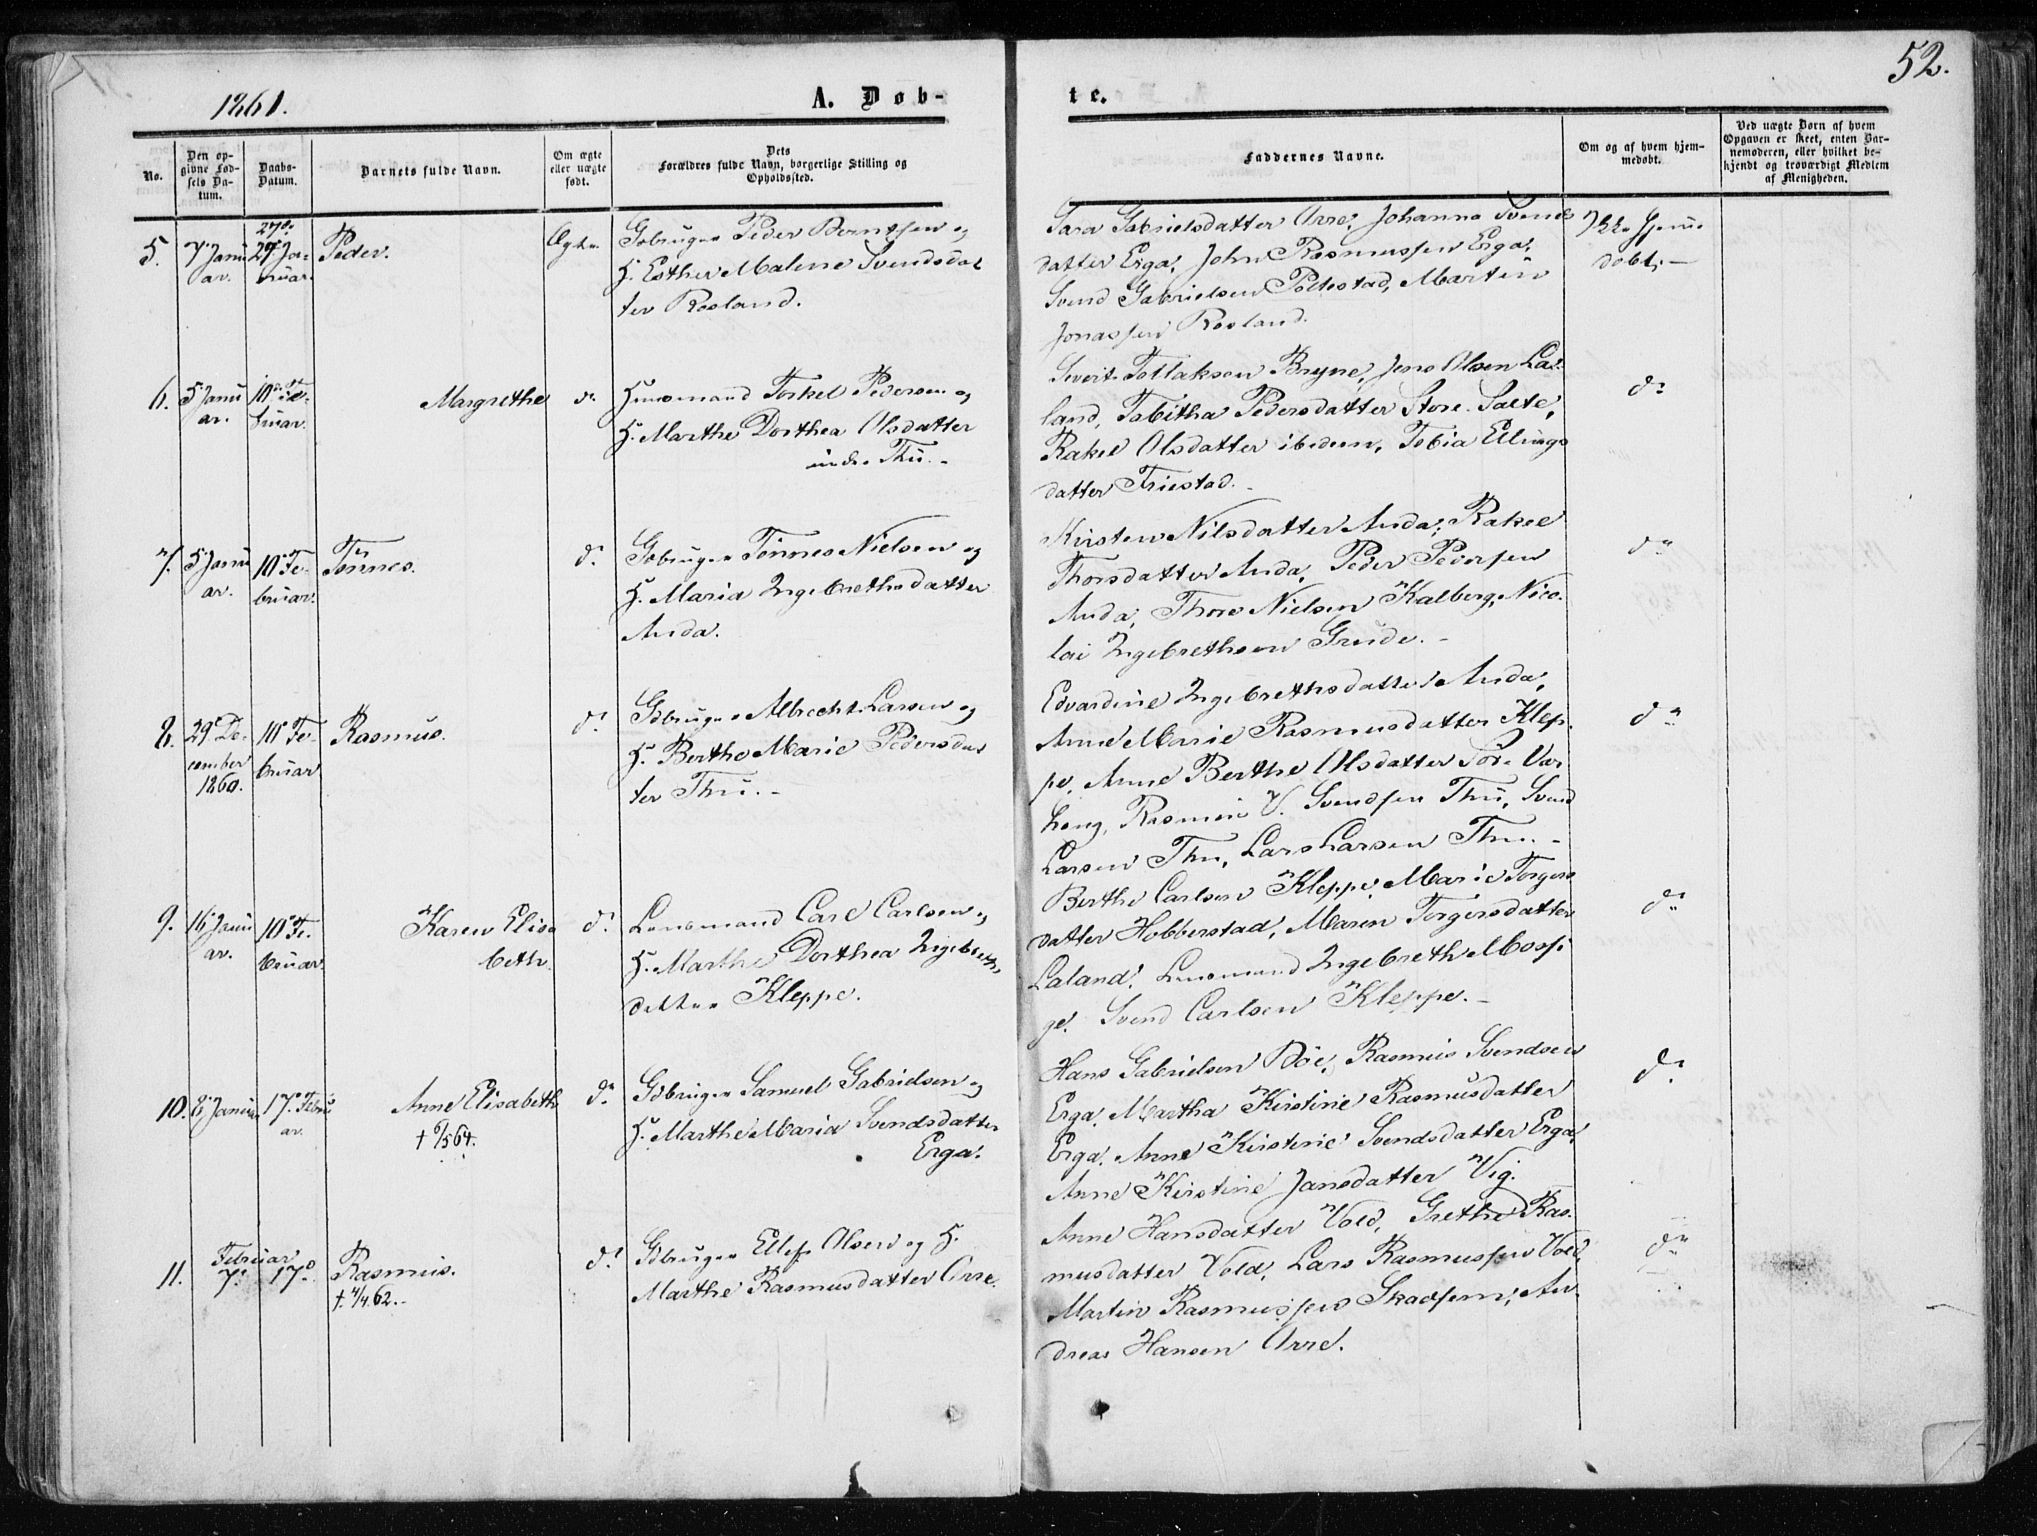 52.
1861.
A. Døb-
te.
No.
Den op-
givne Fød-
sels Da-
tum.
Daabs-
Datum.
Barnets fulde Navn.
Om ægte
eller uægte
født.
Dets
Forældres fulde Navn, borgerlige Stilling og
Opholdssted.
Faddernes Navne.
Om og af hvem hjem-
medøbt.
Ved uægte Børn af hvem
Opgaven er skeet, enten Bar-
nemoderen, eller hvilket be-
kjendt og troværdigt Medlem
af Menigheden.
5.
7 Janu
ar.
27de
27 Ja-
nuar.
Peder.
Ægte.
Gbruger Peder Berntsen og
H. Esther Malene Svendsdat
ter Rosland.
Sara Gabrielsdatter Orre, Johanna Svends
datter Erga, John Rasmussen Erga,
Svend Gabrielsen Poltestad, Martin
Jonassen Rosland.
Ikke hjemme
døbt.
6.
5 Janu
ar.
10de Fe-
bruar.
Margrethe
do
Huusmand Torkel Pedersen og
H. Marthe Dorthea Olsdatter
indre Thu.
Sivert Tollaksen Bryne, Jens Olsen La-
land, Tabitha Pedersdatter Store Salte,
Rakel Olsdatter ibidem, Tobia Ellings
datter Friestad.
do
7.
5 Janu
ar.
10 Fe-
bruar.
Tønnes.
do
Gbruger Tønnes Nielsen og
H. Maria Ingebrethsdatter
Anda.
Kirsten Nilsdatter Anda, Rakel
Thorsdatter Anda, Peder Pedersen
Anda, Thore Nielsen Kalberg, Nico-
lai Ingebrethsen Grude.
do
8.
29 De-
cember
1860.
10 Fe-
bruar
Rasmus.
do
Gbruger Albrecht Larsen og
H. Berthe Marie Pedersdat
ter Thu.
Edvardine Ingebrethsdatter Anda,
Anne Marie Rasmusdatter Klep-
pe, Anne Berthe Olsdatter Sør Var
houg, Rasmus V. Svendsen Thu, Svend
Larsen Thu, Lars Larsen Thu.
do
9.
16 Janu
ar.
10 Fe-
bruar.
Karen Elisa
beth.
do
Lensmand Carl Carlsen og
H. Marthe Dorthea Ingebreths
datter Kleppe.
Berthe Carlsen Kleppe, Marie Torgers
datter Hobberstad, Maren Torgersdatter
Laland, Lensmand Ingebreth Mossi
ge, Svend Carlsen Kleppe.
do
10.
8 Januar
17 Febru
ar.
Anne Elisabeth
† 6/5 64.
do
Gbruger Samuel Gabrielsen og
H. Marthe Maria Svendsdatter
Erga.
Hans Gabrielsen Bøe, Rasmus Svendsen
Erga, Martha Kirstine Rasmusdatter
Erga, Anne Kirstine Svendsdatter Erga,
Anne Kirstine Jansdatter Vig.
do
11.
Februar
7. 17.
Rasmus.
† 4/4 62.
do
Gbruger Ellef Olsen og H.
Marthe Rasmusdatter Orre.
Anne Hansdatter Vold, Grethe Ras-
musdatter Vold, Lars Rasmussen Vold,
Martin Rasmussen Skadsem, An-
dreas Hansen Orre.
do